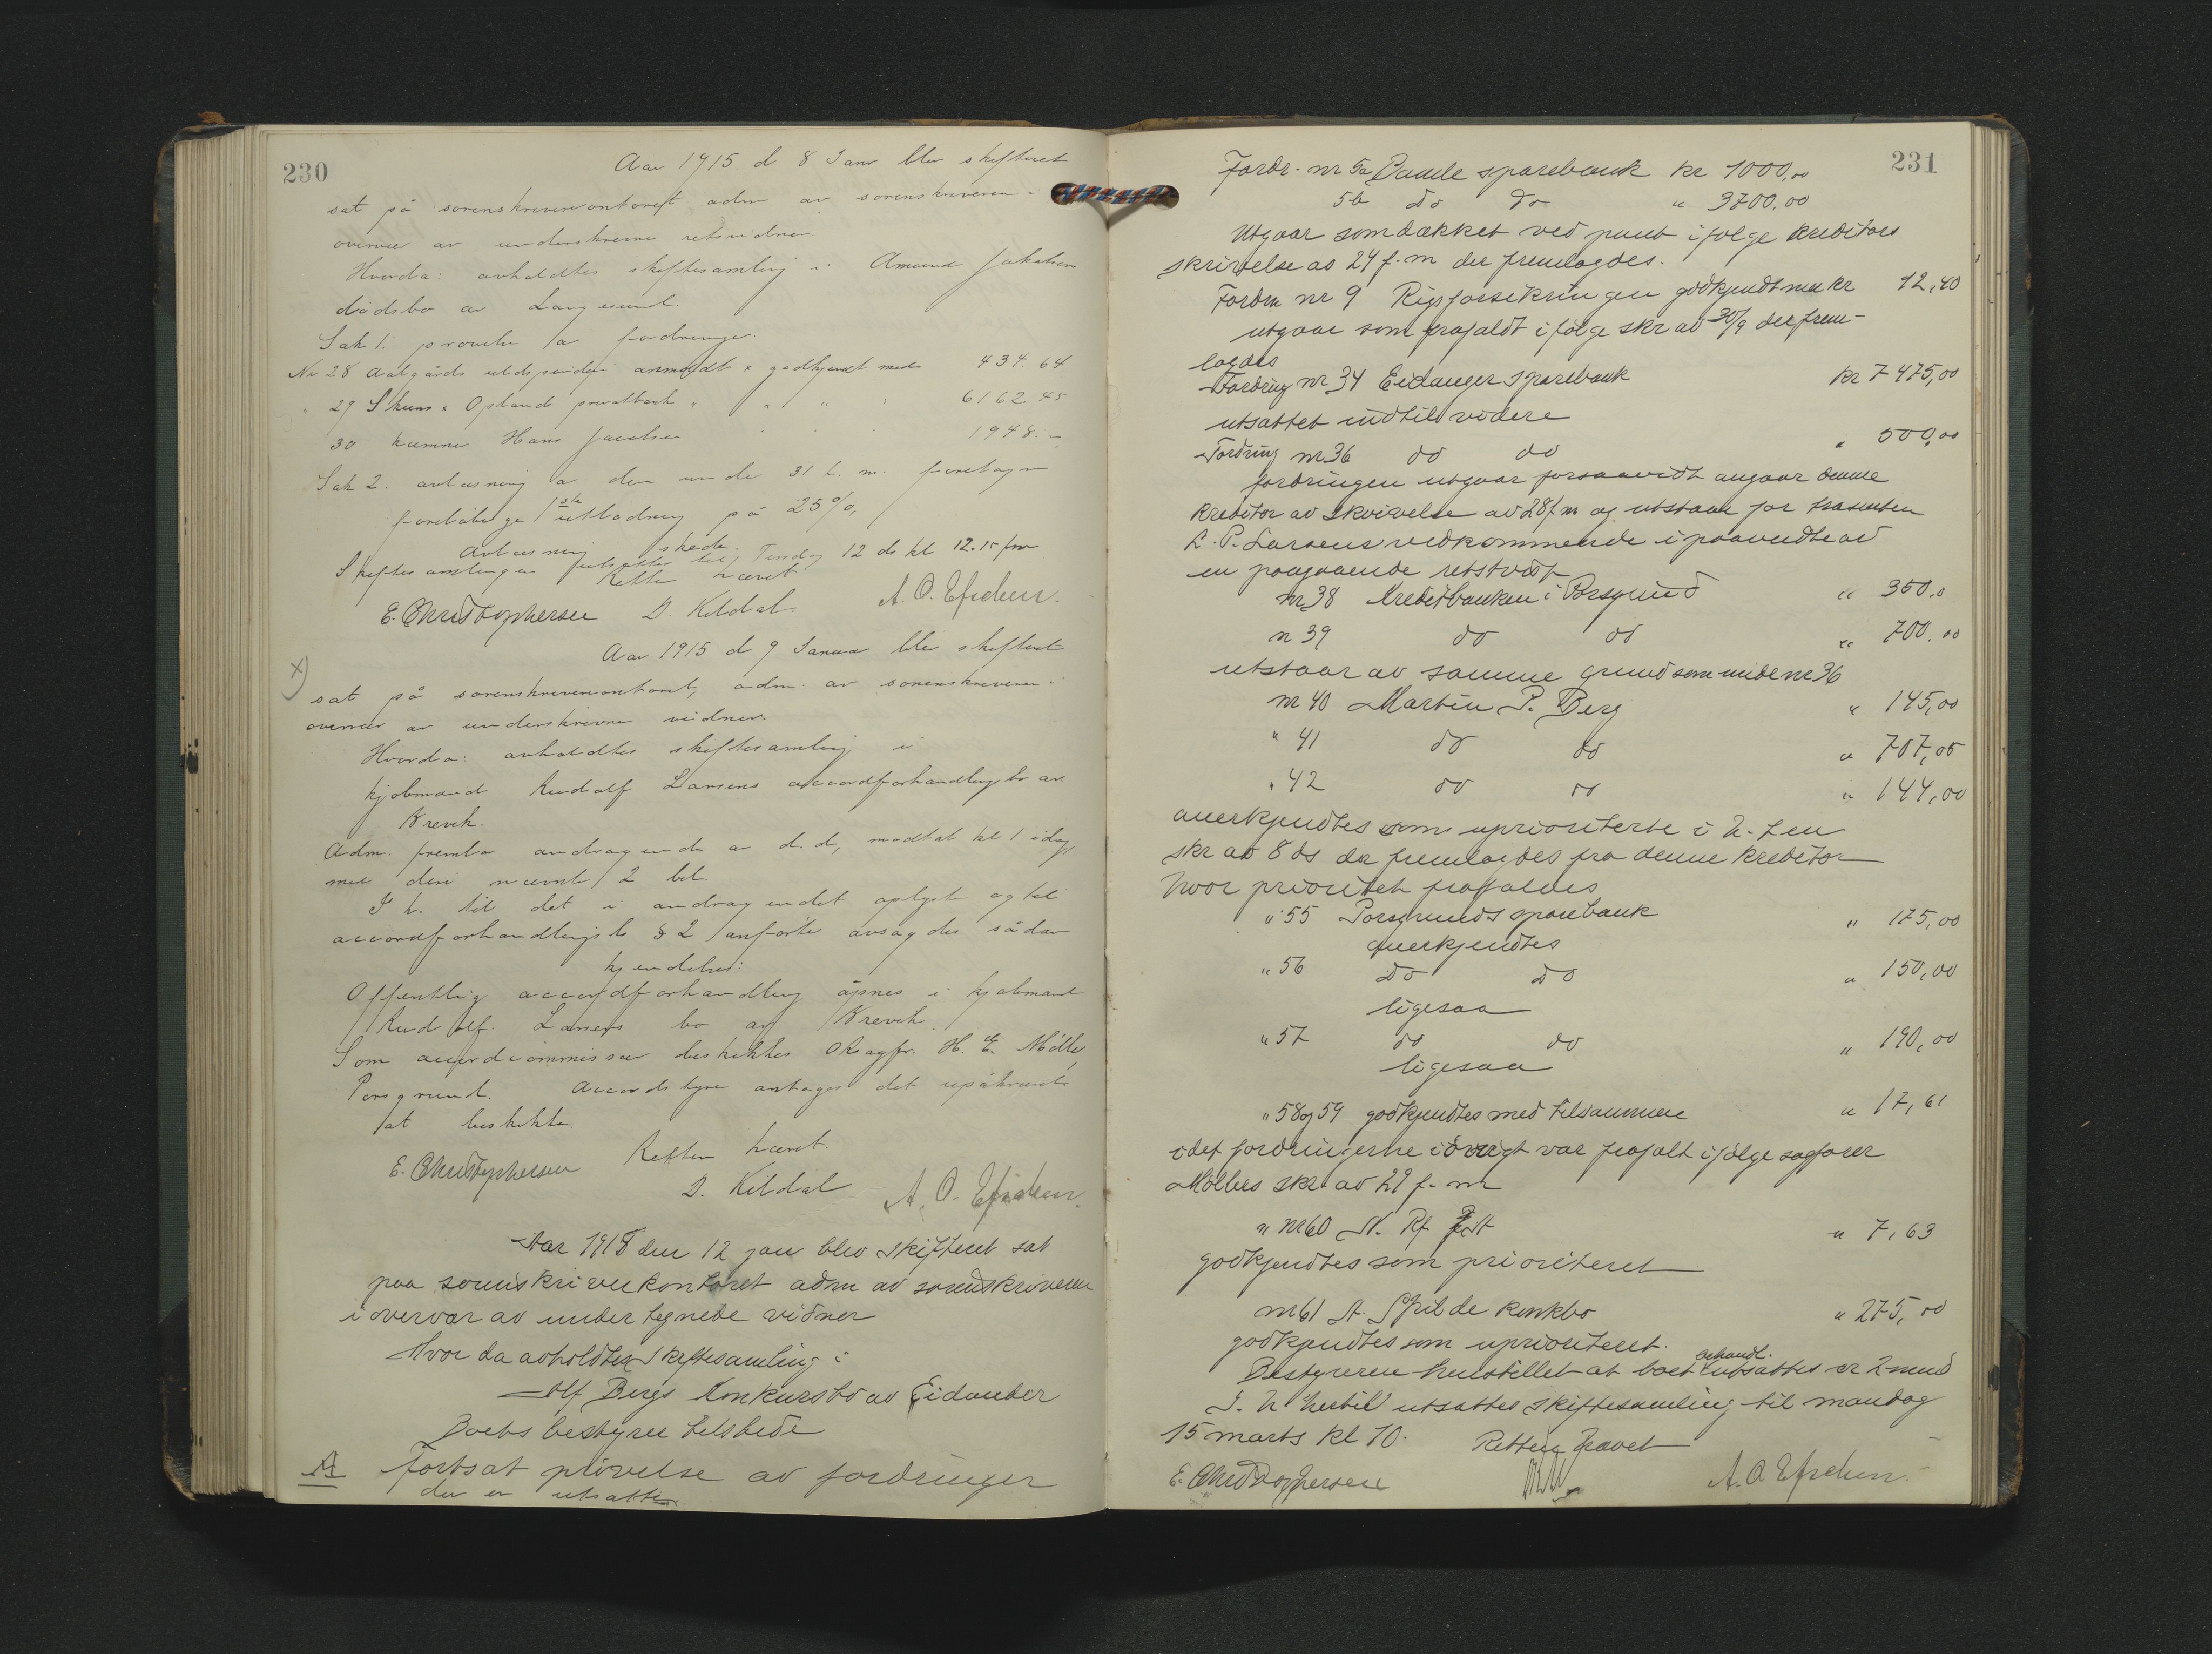 230
Aar 1915 d 8 Janr blev skifteret
sat på sorenskriverkontoret adm av sorenskriveren i
overvær av underskrevne retsvidner.
Hvorda: avholdtes skiftesamling i Amund Jakobsen
dødsbo av Langesund.
Sak 1. prøvelse av fordringer.
Nr 28 Aalgårds uldspinderi anmeldt & godkjendt med 434.64
" 29 Skiens & Oplands privatbank " " " " 6162.45
30 Hans Jacobsen " " " 1948.-
Sak 2. avlæsning av den under 31 f. m. foretagne
foreløbige 1ste utlodning på 25%,
Avlæsning skede.
Skiftesamlingen utsattes til Tirsdag 12 ds kl 12.15 fm
Retten hævet
E. Christophersen D. Kildal. A. O. Efschen.
x) Aar 1915 d 9 Januar blev skifteret
sat på sorenskriverkontoret, adm. av sorenskriveren i
overvær av underskrevne vidner.
Hvorda: avholdtes skiftesamling i
kjøbmand Rudolf Larsens accordforhandlingsbo av
Brevik.
Adm. fremla andragende av d.d., modtat kl 1 idag,
med deri nævnte 2 bil.
I h. til det i andragendet oplyste og til
accordforhandlingsl. § 2 anførte avsagdes sådan
kjendelse:
Offentlig accordforhandling åpnes i kjøbmand
Rudolf Larsens bo av Brevik.
Som accordcommissær beskikkes O.R.sagfr. H. E. Møller,
Porsgrund. Accordstyre antages det upåkrævet
at beskikke.
Retten hævet.
E. Christophersen D. Kildal A. O. Efschen.
Aar 1915 den 12 jan blev skifteret sat
paa sorenskriverkontoret adm av sorenskriveren
i overvær av undertegnede vidner
Hvor da avholdtes skiftesamling i
Alf Bergs Konkursbo av Eidanger
Boets bestyrer tilstede
A Fortsat prøvelse av fordringer
der er utsatte
231
Fordr. nr 5a Bamle sparebank kr 1000,00
5b do do " 3700,00
Utgaar som dækket ved pant ifølge kreditors
skrivelse av 24 f. m der fremlagdes.
Fordrn nr 9 Rigsforsikringen godkjendt med kr 12,40
utgaar som frafaldt ifølge skr av 30/9 der frem-
lagdes
Fordring nr 34 Eidanger sparebank kr 7475,00
utsattet indtil videre
Fordring nr 36 do do " 500,00
fordringen utgaar forsaavidt angaar denne
kreditor av skrivelse av 28 f m og utstaar for trasenten
L. P. Larsens vedkommende i paavente av
en paagaaende retstvist
nr 38 Kreditbanken i Porsgrund " 350.0
n 39 do do " 700.00
utstaar av samme grund som under nr 36
nr 40 Martin P. Berg " 145,00
" 41 do do " 707,05
" 42 do do " 144,00
anerkjendtes som uprioriterte i h. t en
skr av 8 ds der fremlagdes fra denne kreditor
hvor prioritet frafaldes
" 55 Porsgrunds sparebank " 175,00
anerkjendtes
" 56 do do " 150,00
ligesaa
" 57 do do " 190,00
ligesaa
" 58 og 59 godkjendtes med tilsammen " 17,61
idet fordringerne i øvrigt var frafalt ifølge sagfører
Møllers skr. av 29 f. m
" nr 60 N. Rf " 7,63
godkjendtes som prioriteret
nr 61 A. Spilde konkbo " 275,00
godkjendtes som uprioriteret.
Bestyreren henstillet at boet behandl. utsattes ca 2 mnd
I. h hertil utsattes skiftesamling til mandag
15 marts kl 10. Retten hævet
E. Christophersen A. O. Efschen.